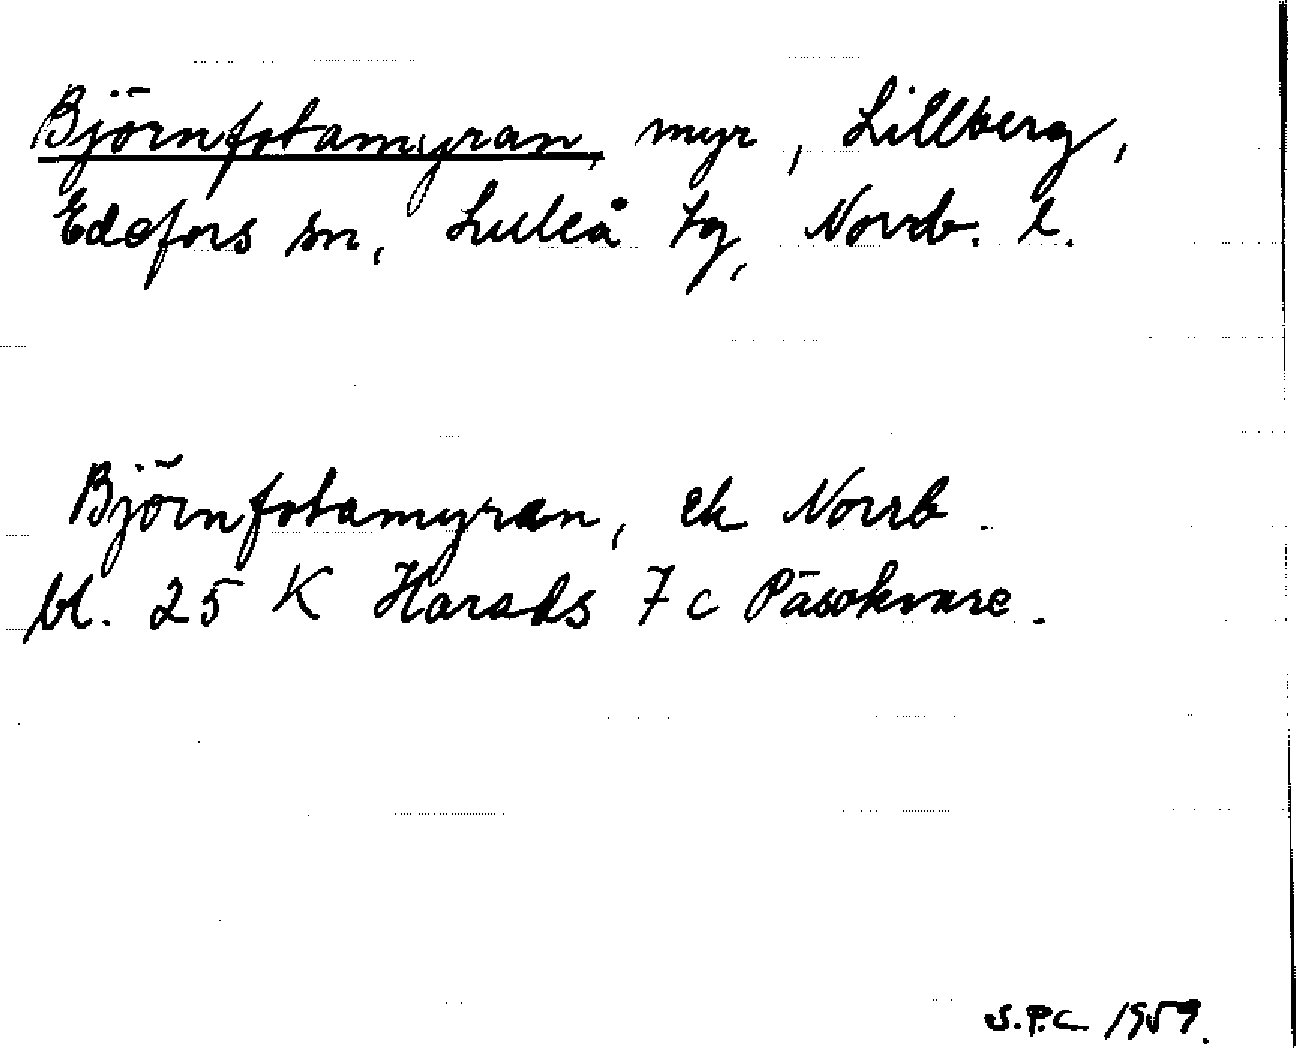 Björnfotamyran, myr, Lillberg,
Edefors sn, Luleå tg, Norrb. l.
Björnfotamyran, ek Norrb.
bl. 25 K Harads 7 c Päsokvare.
S.P.C 1959.